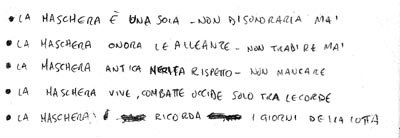 • LA MASCHERA È UNA SOLA - NON DISONORARLA MA'
• LA MASCHERA ONORA LE ALLEANZE - NON TRADIRE MA'
• LA MASCHERA ANTICA MERITA RISPETTO - NON MANCARE
• LA MASCHERA VIVE, COMBATTE UCCIDE SOLO TRA LE CORDE
• LA MASCHERA RICORDA I GIORNI DELLA LOTTA